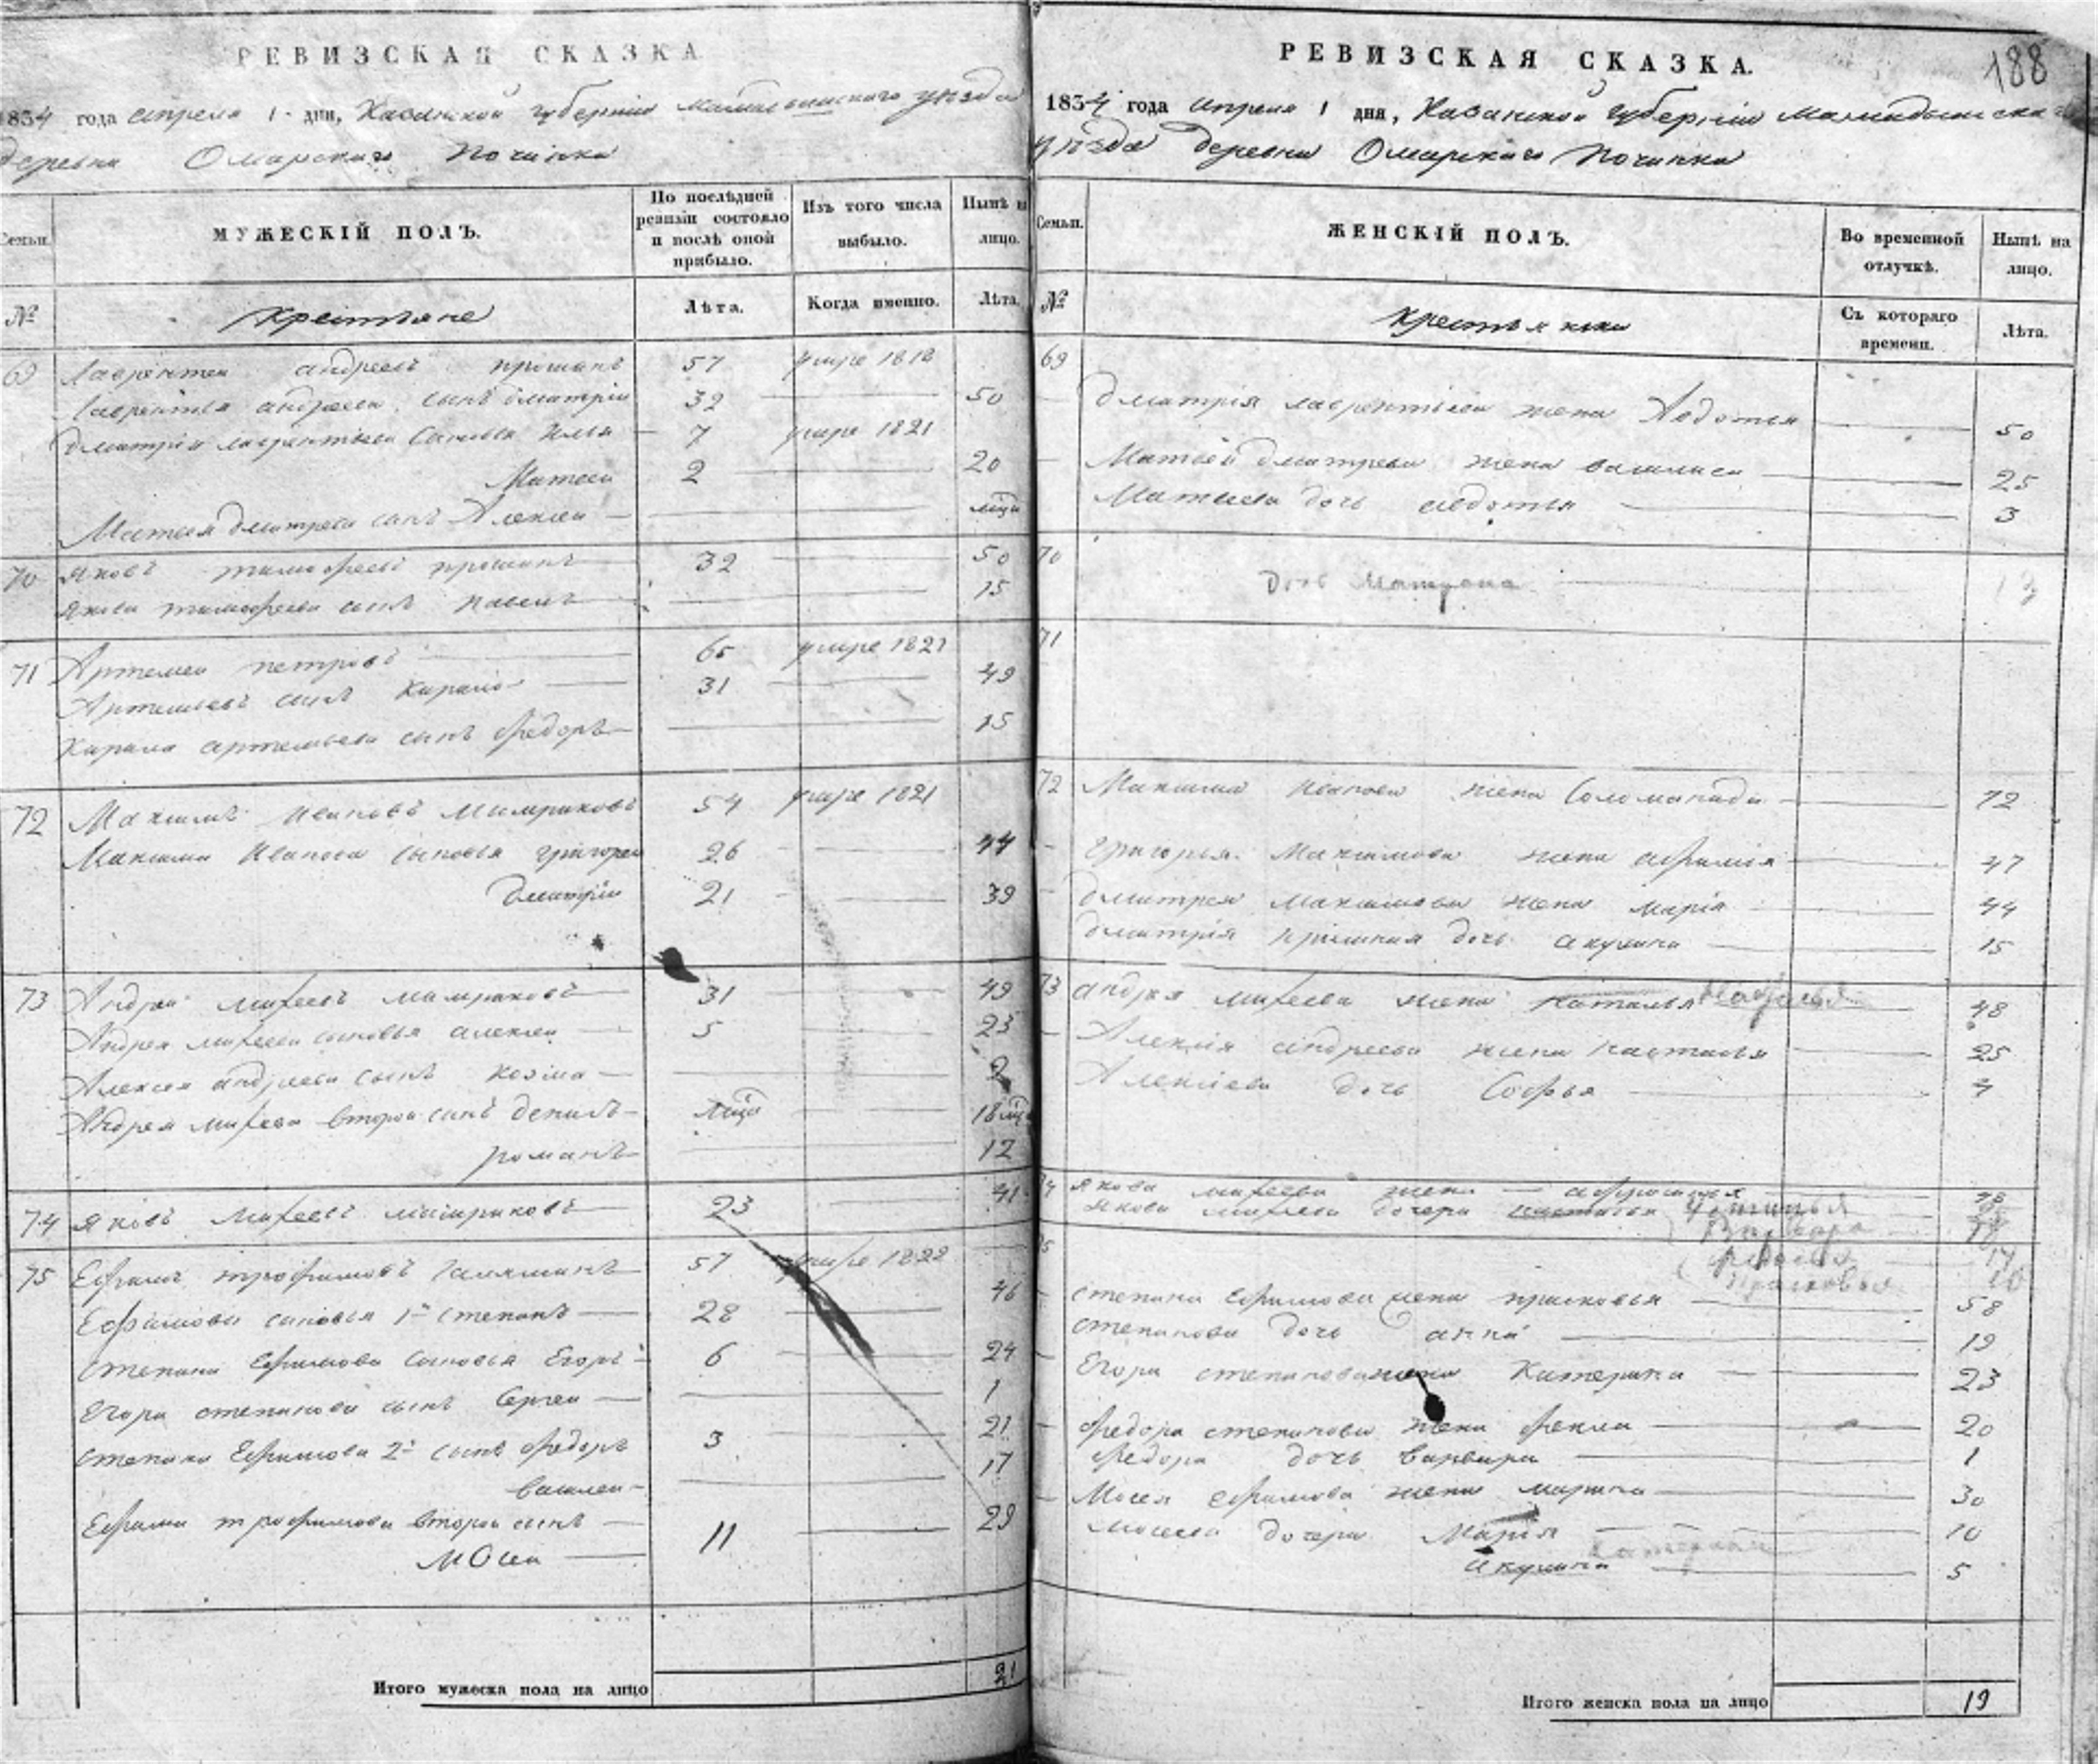 РЕВИЗСКАЯ СКАЗКА
1834 года апреля 1 дни, Казанской губернии уезда
деревни Омарскаго Починка
Семьи.
МУЖЕСКІЙ ПОЛЪ.
По послѣдней ревизіи состояло и послѣ оной прибыло.
Изъ того числа выбыло.
Нынѣ на лицо.
№
Крестьяне
Лѣта.
Когда именно.
Лѣта.
69 Лаврентей андреевъ 57 умре 1818
Лаврентья андреева сынъ дмитрій 32 50
дмитрія лаврентьева сыновья Илья 7 умре 1821
Матвей 2 20
Матвея дмитрева сынъ Алексей
70 Яковъ тимофеевъ 32 50
Якова тимофеева сынъ павелъ 15
71 Артемей петровъ 65 умре 1821
Артемьевъ сынъ Кирило 31 49
Кирила артемьева сынъ федоръ 15
72 Максимъ Ивановъ Мамраковъ 54 умре 1821
Максима Иванова сыновья григорей 26 44
дмитрій 21 39
73 Андрей михеевъ мамраковъ 31 49
Андрея михеева сыновья алексей 5 23
Алексея андреева сынъ козма 2
Андрея михеева второй сынъ денисъ 18
романъ 12
74 Яковъ Михеевъ мамраковъ 23 41
75 Ефимъ трофимовъ 57 умре 1822
Ефимовы сыновья 1й степанъ 28 46
степана Ефимова сыновья Егоръ 6 24
Егора степанова сынъ Сергей 1
степана Ефимова 2й сынъ федоръ 3 21
василей 17
Ефима трофимова второй сынъ
Мосей 11 29
Итого мужеска пола на лицо 21
РЕВИЗСКАЯ СКАЗКА.
188
1834 года апреля 1 дня, Казанской губерніи Мамадышскаго
уезда деревни Омарскаго Починка
Семьи.
ЖЕНСКІЙ ПОЛЪ.
Во временной отлучкѣ.
Нынѣ на лицо.
№
Крестьянки
Съ котораго времени.
Лѣта.
69
дмитрія лаврентьева жена Авдотья 50
Матвея дмитрева жена василиса 25
Матвеева дочь авдотья 3
70
дочь Матрона
71
72 Максима Иванова жена Соломанида 72
григорья Максимова жена афимія 47
дмитрея максимова жена марія 44
дмитрія дочь акулина 15
73 андрея михеева жена наталья 48
Алексія андреева жена настасья 25
Алексіева дочь Софья 4
74 Якова михеева жена
Якова михеева дочери
Варвара
75
степана Ефимова жена прасковья 58
степанова дочь анна 19
Егора степанова жена Катерина 23
федора степанова жена фекла 20
федора дочь варвара 1
Мосея ефимова жена марина 30
мосеева дочери Марія 10
акулина 5
Итого женска пола на лицо 19